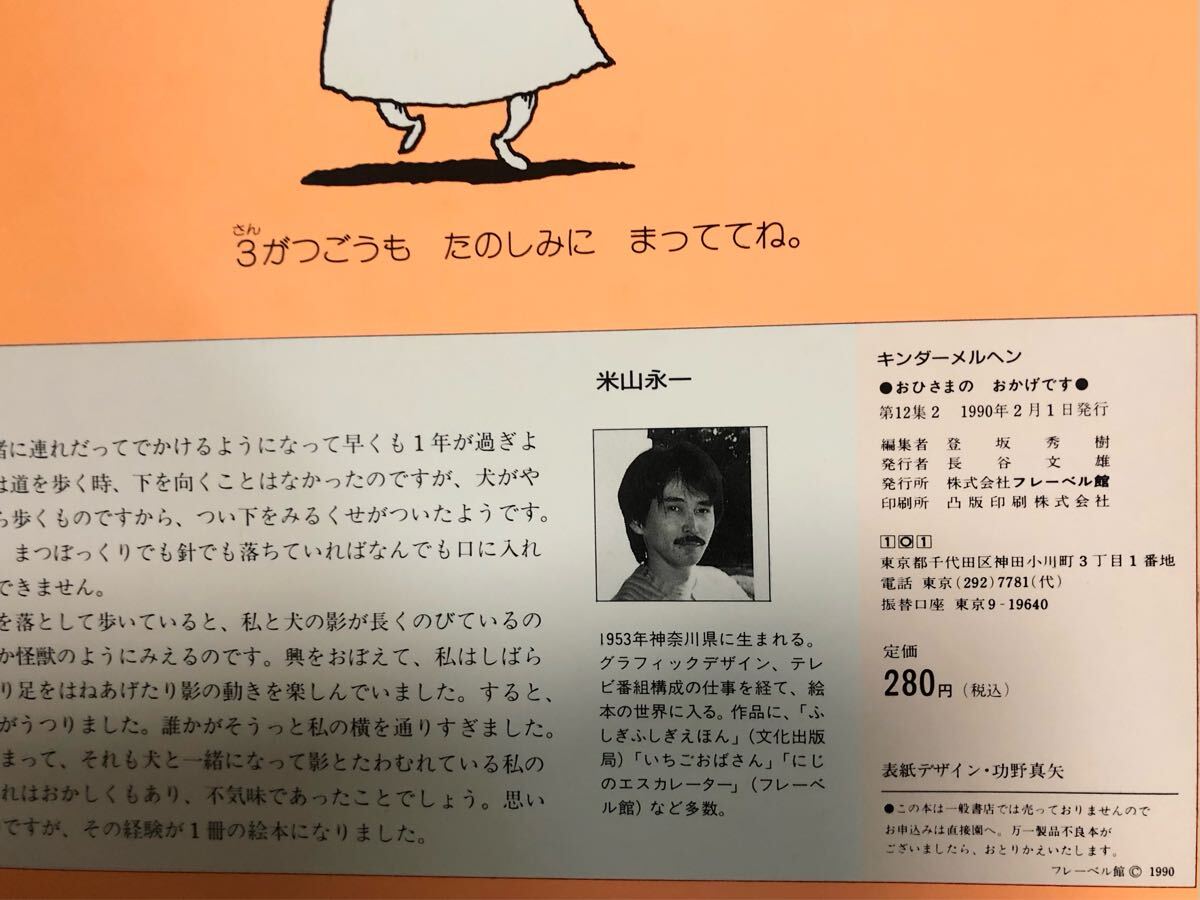 さん
3がつごうも たのしみに まっててね。
緒に連れだってでかけるようになって早くも1年が過ぎよ
は道を歩く時、下を向くことはなかったのですが、犬がや
ら歩くものですから、つい下をみるくせがついたようです。
まつぼっくりでも針でも落ちていればなんでも口に入れ
できません。
を落として歩いていると、私と犬の影が長くのびているの
か怪獣のようにみえるのです。興をおぼえて、私はしばら
り足をはねあげたり影の動きを楽しんでいました。すると、
がうつりました。誰かがそうっと私の横を通りすぎました。
まって、それも犬と一緒になって影とたわむれている私の
れはおかしくもあり、不気味であったことでしょう。思い
ですが、その経験が1冊の絵本になりました。
米山永一
1953年神奈川県に生まれる。
グラフィックデザイン、テレ
ビ番組構成の仕事を経て、絵
本の世界に入る。作品に、「ふ
しぎふしぎえほん」(文化出版
局)「いちごおばさん」「にじ
のエスカレーター」(フレーベ
ル館)など多数。
キンダーメルヘン
●おひさまの おかげです●
第12集2 1990年2月1日発行
編集者 登坂秀樹
発行者 長谷文雄
発行所 株式会社フレーベル館
印刷所 凸版印刷株式会社
101
東京都千代田区神田小川町3丁目1番地
電話 東京(292)7781(代)
振替口座 東京9-19640
定価
280円(税込)
表紙デザイン・功野真矢
●この本は一般書店では売っておりませんので
お申込みは直接園へ。万一製品不良本が
ございましたら、おとりかえいたします。
フレーベル館 © 1990